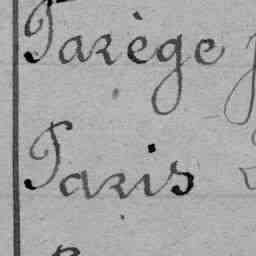 Parège
Paris